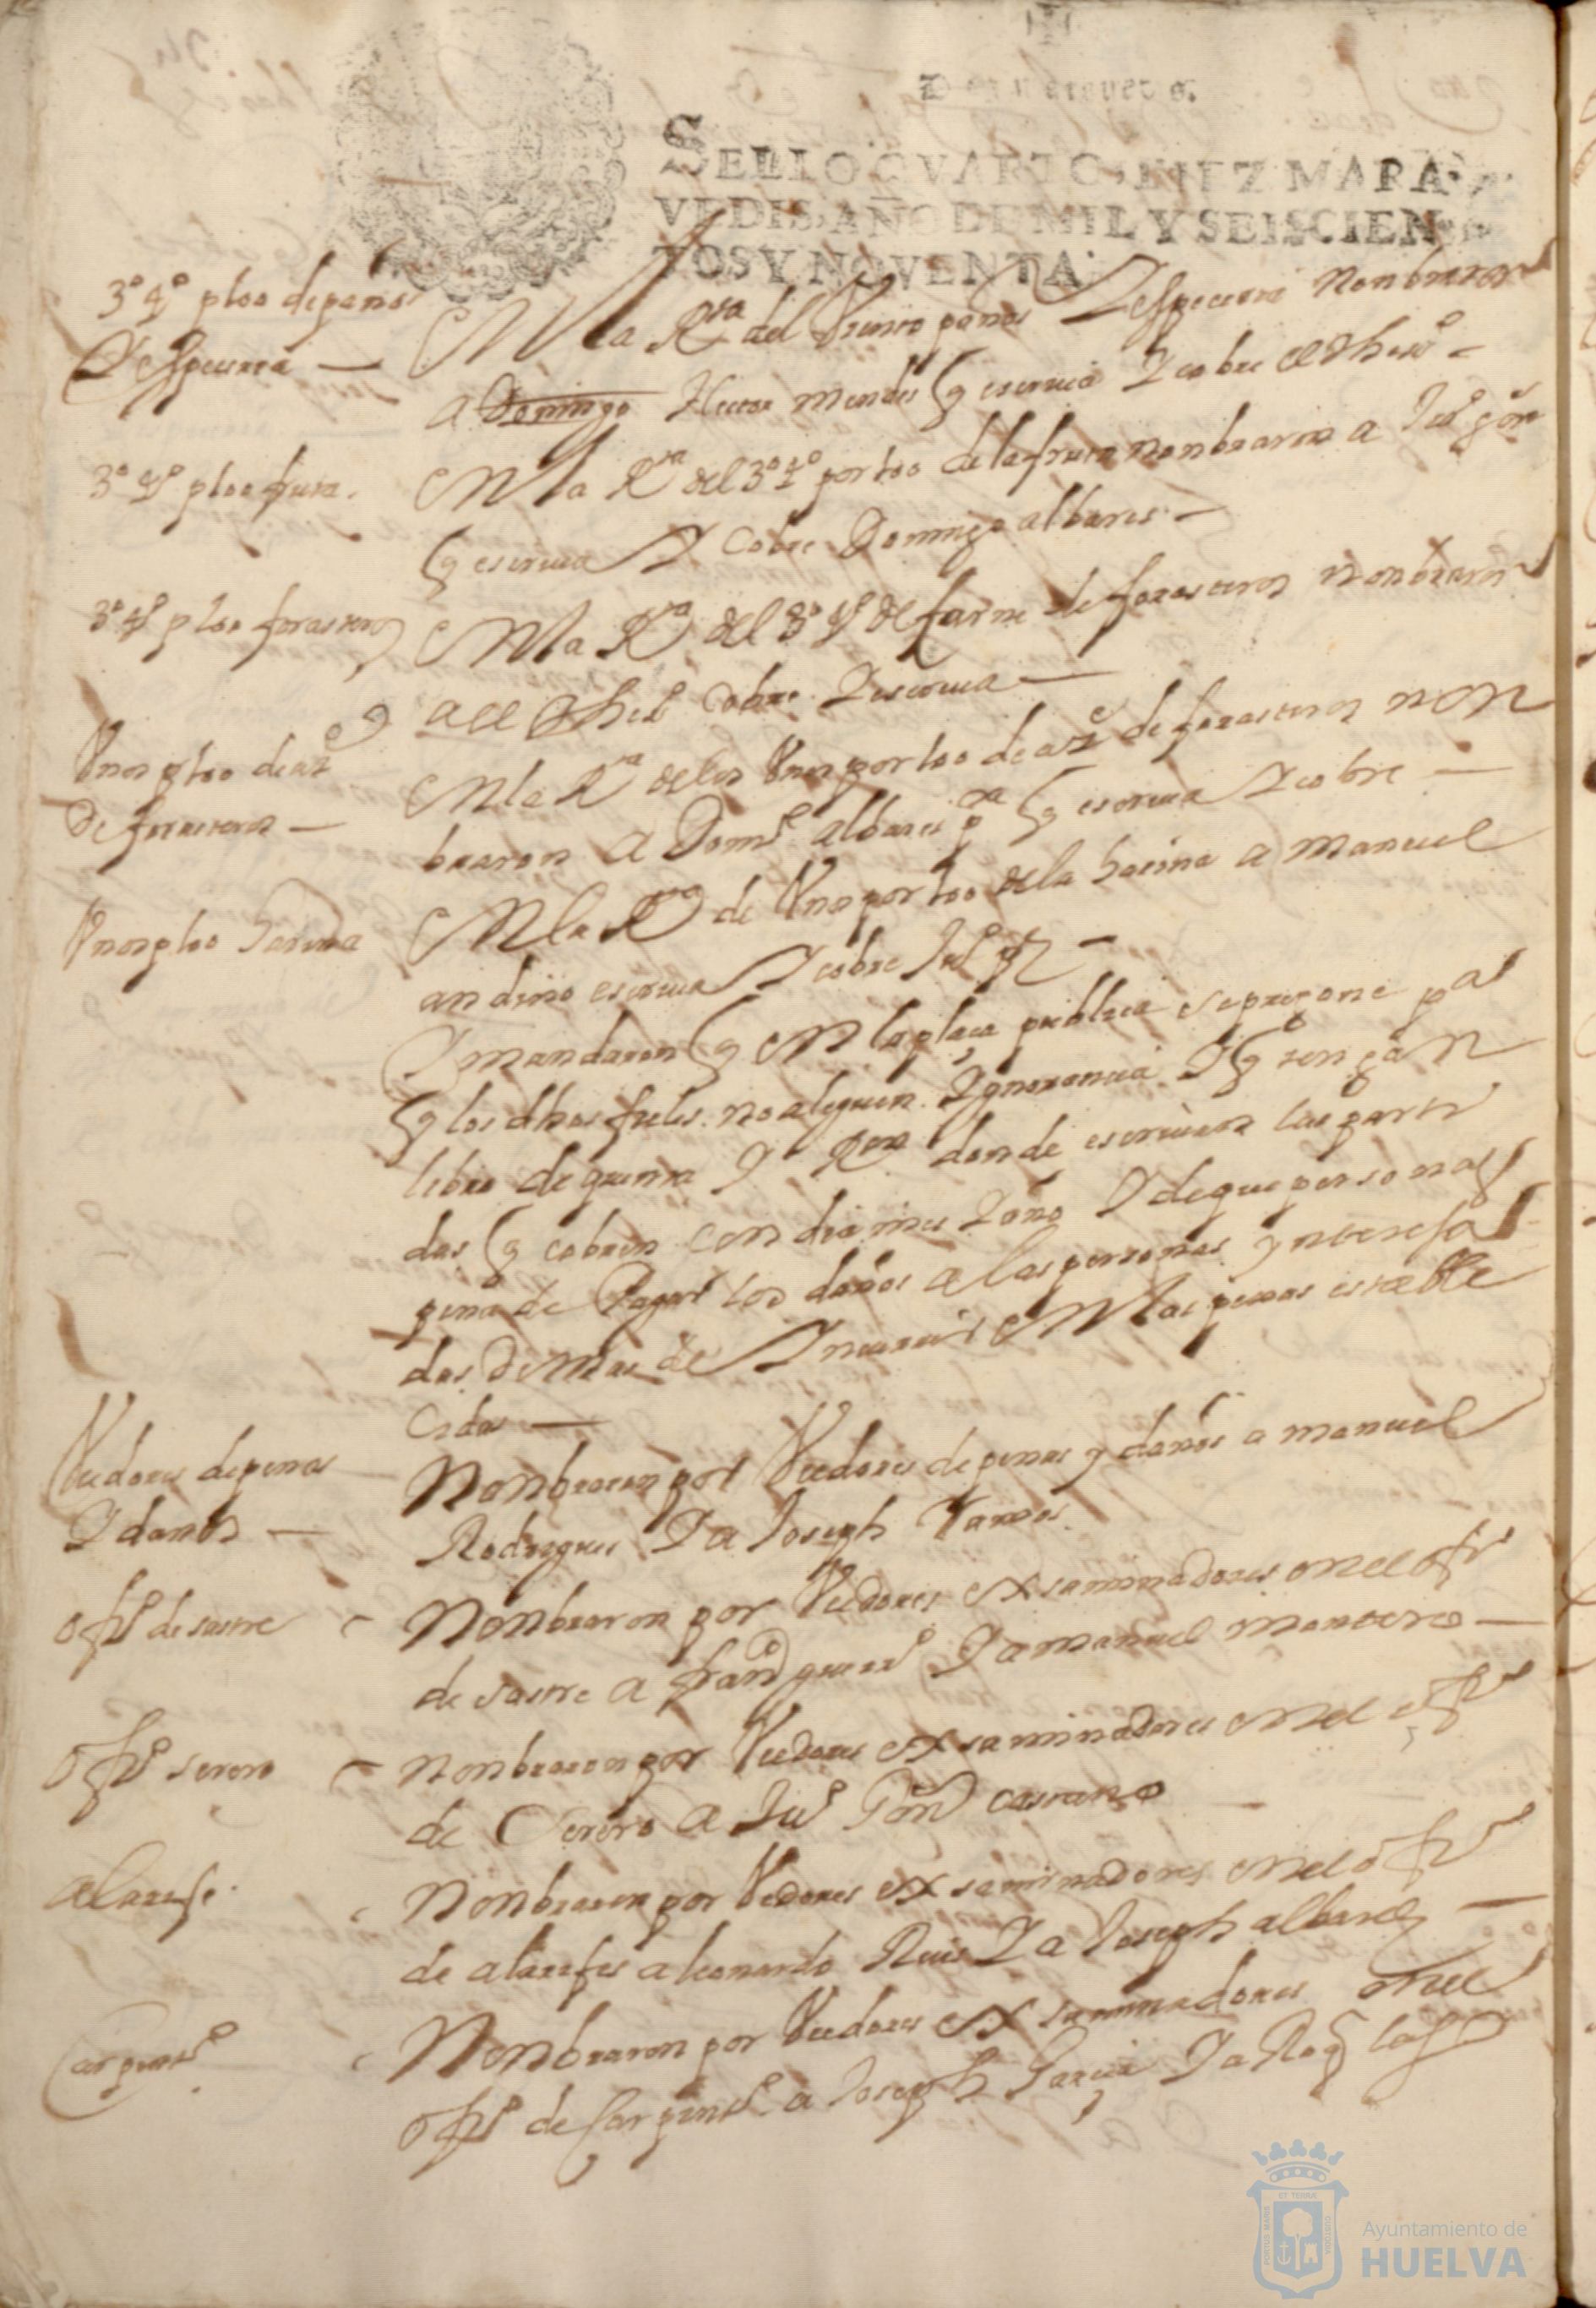 SELLO QVARTO, DIEZ MARA
VEDIS, AÑO DE MIL Y SEISCIEN
TOS Y NOVENTA.
3º qº pLoo de paños
Y espeseria —
En la Rta del paños Y espeseria nonbraron
a Domingo Hector mendes q escriua Y cobre el dho —
3º qº pLoo fruta.
En la Ra del 3º qº por Loo de la fruta nonbraron a Juº
q escriua Y cobre Domingo albares —
3º qº pLoo forasteros
En la Ra del 3º qº de forasteros nonbraron
a el dho cobre Y escriua —
Vnos pLoo de azte
de forasteros —
En la Ra de los Vnos por Loo de azte de forasteros non
braron a Domº albares pa q escriua Y cobre —
Vnos pLoo harina
En la Ra de Vno por Loo de la harina a manuel
andino escriua Y cobre Juº —
Y mandaron q en la plasa publica se pregone pa
q los dhos fieles no aleguen Ygnorancia Y q tengan
libro de quenta Y Ron donde escriuan las parti
das q cobren con dia mes Y año Y de que personas
pena de Pagar los daños a las personas Ynteresa
das demas de Yncurrir en las penas estable
cidas —
Veedores de penas
Y daños —
Nonbraron por Veedores de penas y daños a manuel
Rodrigues Y a Joseph Ramos
ofisº de sastre
Nonbraron por Veedores exsaminadores en el ofisº
de sastre a franº Y a manuel montero —
ofisº serero
nonbraron por Veedores exsaminadores en el ofisº
de Serero a Juº Gon castano
alarife.
Nonbraron por Vedores exsaminadores en el ofisº
de alarifes a leonardo Ruis Y a Joseph albares —
Carpintº
Nonbraron por Veedores exsaminadores en el
ofisº de Carpintº a Joseph Garcia Y a
Ayuntamiento de
HUELVA